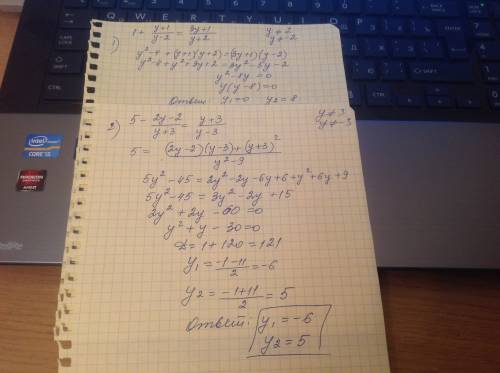 1) 1 + (y+1)/(y-2) = (3y+1)/(y+2) y ≠ 2
y ≠ -2
y² - 4 + (y+1)(y+2) = (3y+1)(y-2)
y² - 4 + y² + 3y + 2 = 3y² - 5y - 2
y² - 8y = 0
y(y-8) = 0
Ответ: y₁ = 0 y₂ = 8
2) 5 - (2y-2)/(y+3) = (y+3)/(y-3) y ≠ 3
y ≠ -3
5 = ((2y-2)(y-3) + (y+3)²)/(y²-9)
5y² - 45 = 2y² - 2y - 6y + 6 + y² + 6y + 9
5y² - 45 = 3y² - 2y + 15
2y² + 2y - 60 = 0
y² + y - 30 = 0
D = 1 + 120 = 121
y₁ = (-1-11)/2 = -6
y₂ = (-1+11)/2 = 5
Ответ: y₁ = -6
y₂ = 5
intel inside
CORE i5
RADEON
GRAPHICS
AMD